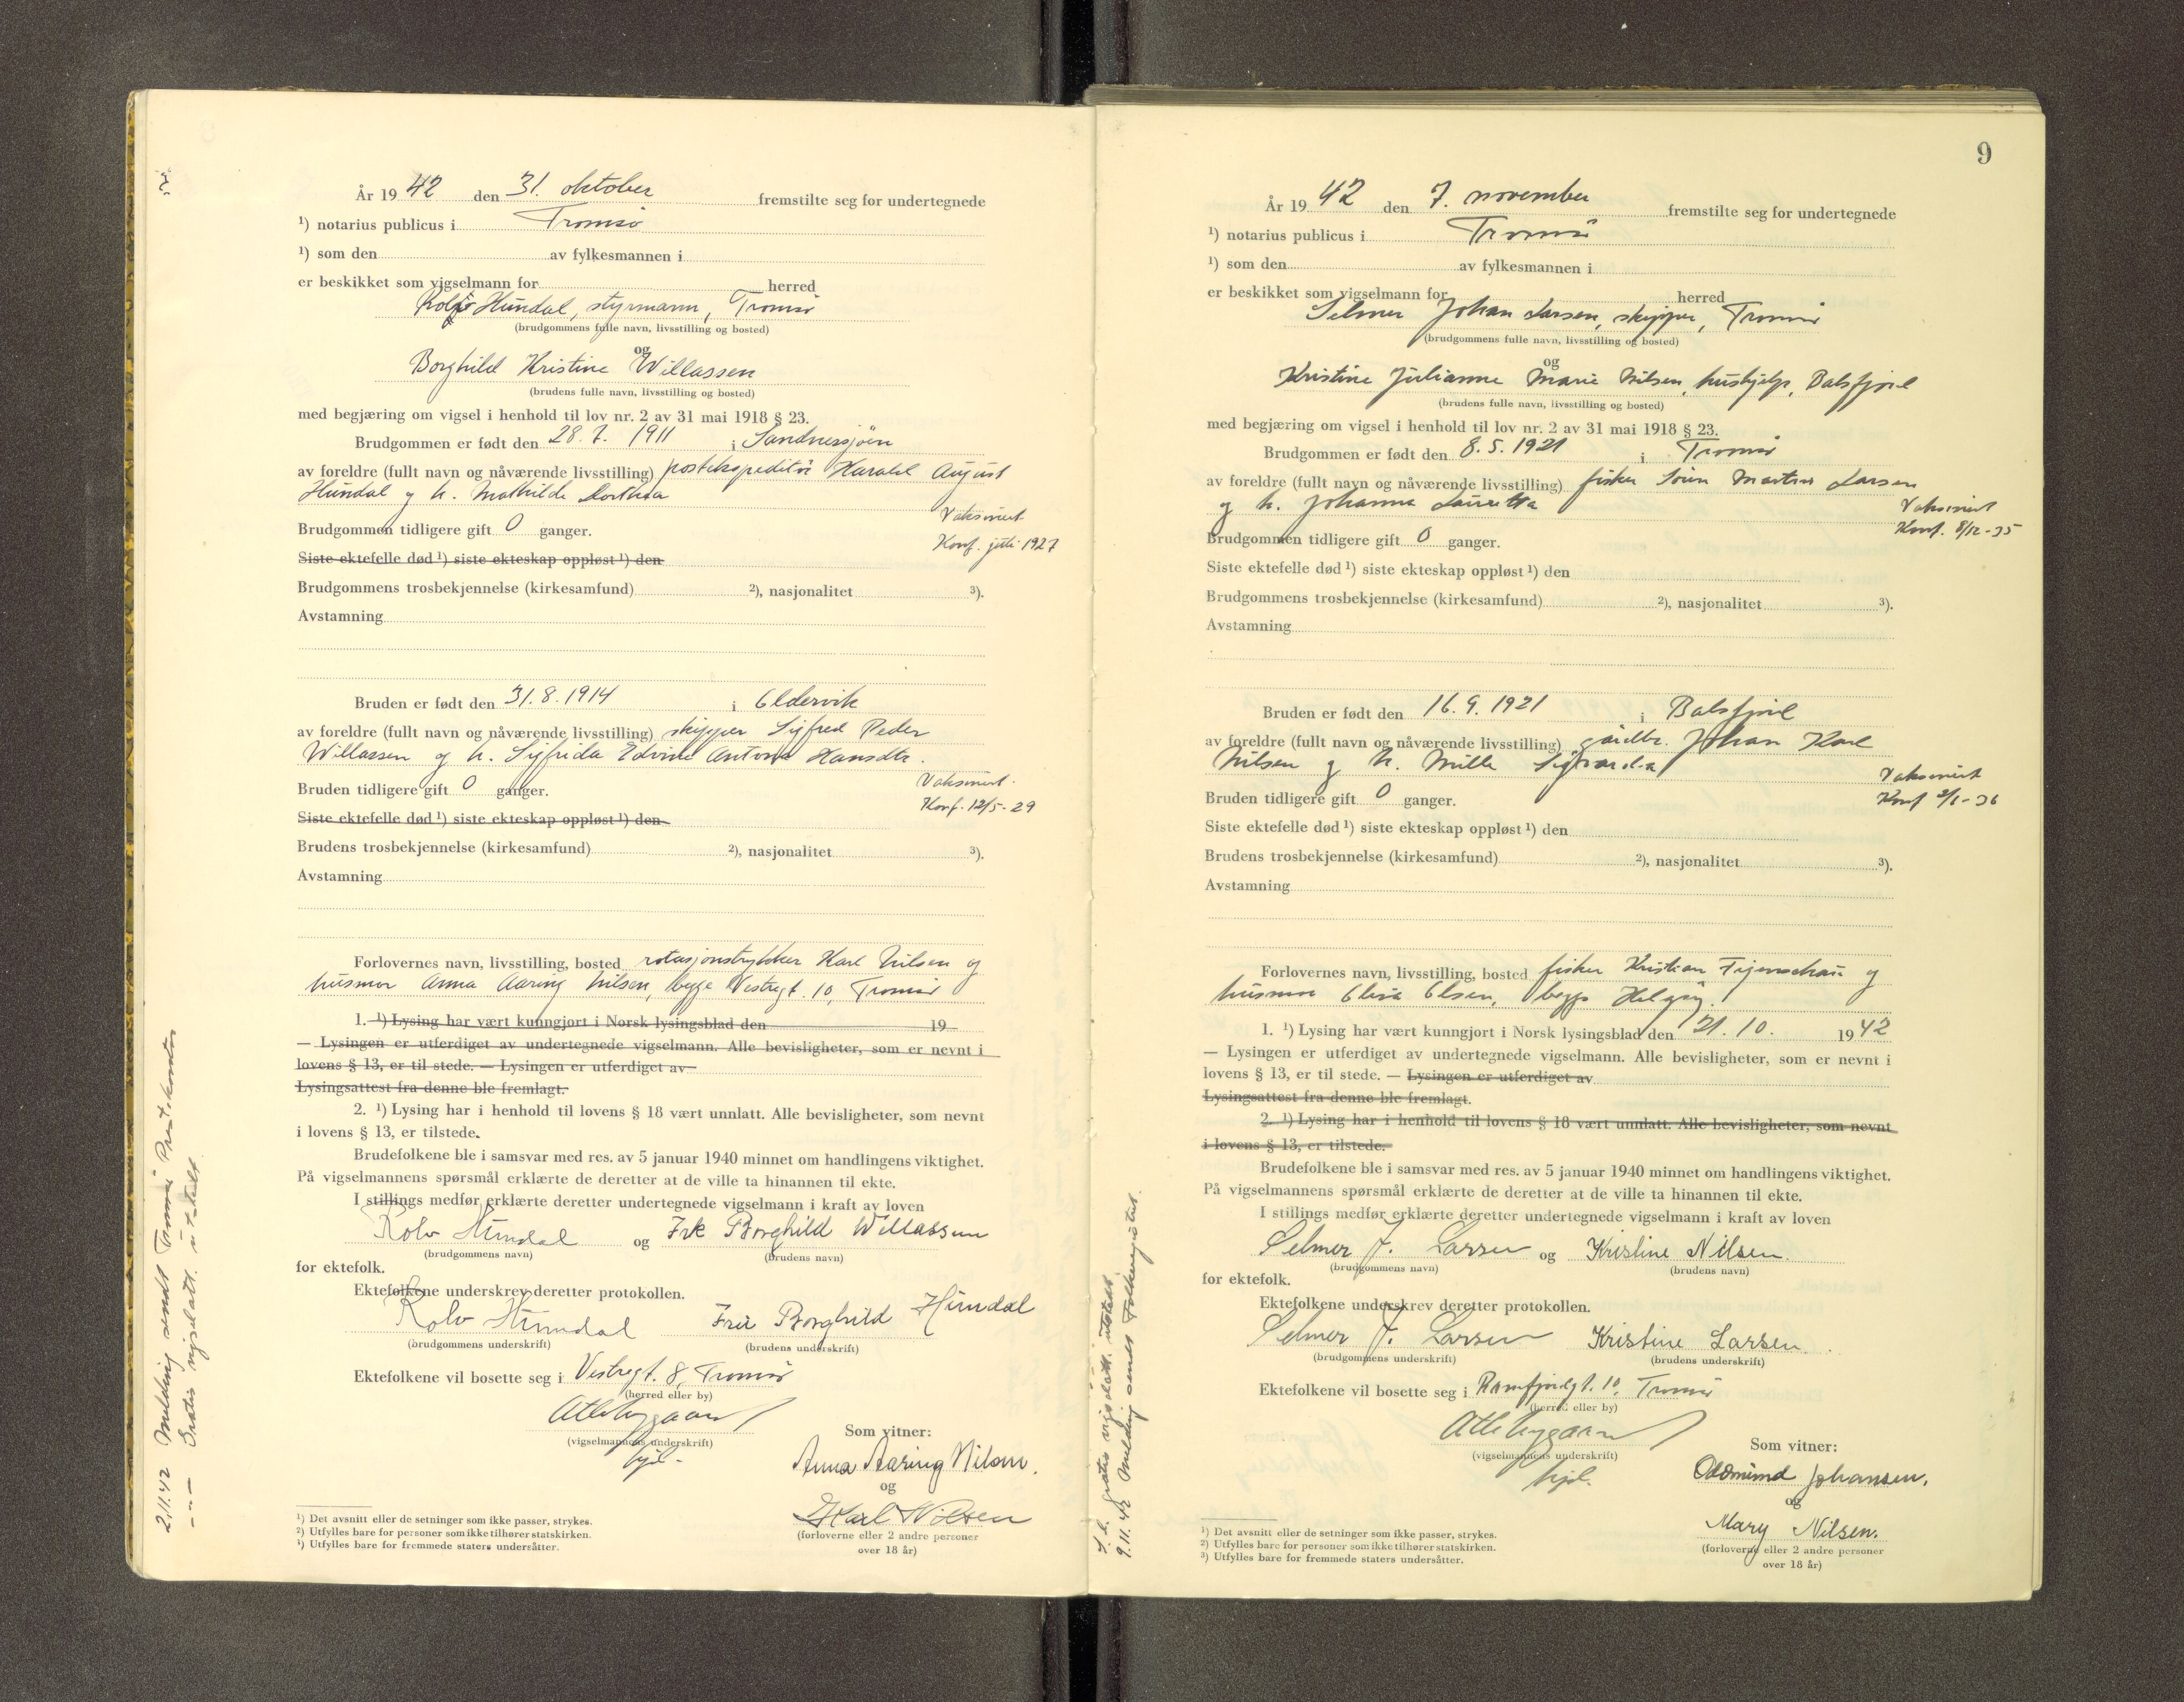 År 19 42 den 31. oktober fremstilte seg for undertegnede
¹) notarius publicus i Tromsø
¹) som den av fylkesmannen i
er beskikket som vigselmann for herred
Hundal, styrmann, Tromsø
(brudgommens fulle navn, livsstilling og bosted)
og
Borghild Kristine Willassen
(brudens fulle navn, livsstilling og bosted)
med begjæring om vigsel i henhold til lov nr. 2 av 31 mai 1918 § 23.
Brudgommen er født den 28. 7. 1911 i Sandnessjøen
av foreldre (fullt navn og nåværende livsstilling) postekspeditør Harald August
Hundal g h. Mathilde Dorthea
Vaksinert
Brudgommen tidligere gift 0 ganger.
Konf. juli 1927
Siste ektefelle død ¹) siste ekteskap oppløst ¹) den
Brudgommens trosbekjennelse (kirkesamfund) ²), nasjonalitet ³).
Avstamning
Bruden er født den 31. 8. 1914 i Oldervik
av foreldre (fullt navn og nåværende livsstilling) skipper Sigfred Peder
Willassen og h. Sigfrida Edvine Antona Hansdtr.
Vaksinert.
Bruden tidligere gift 0 ganger.
Konf. 12/5-29
Siste ektefelle død ¹) siste ekteskap oppløst ¹) den
Brudens trosbekjennelse (kirkesamfund) ²), nasjonalitet ³).
Avstamning
Forlovernes navn, livsstilling, bosted rotasjonstrykker Karl Nilsen og
husmor Anna Aaring Nilsen, begge Vestregt. 10, Tromsø
1. ¹) Lysing har vært kunngjort i Norsk lysingsblad den 19
— Lysingen er utferdiget av undertegnede vigselmann. Alle bevisligheter, som er nevnt i
lovens § 13, er til stede. — Lysingen er utferdiget av
Lysingsattest fra denne ble fremlagt.
2. ¹) Lysing har i henhold til lovens § 18 vært unnlatt. Alle bevisligheter, som nevnt
i lovens § 13, er tilstede.
Brudefolkene ble i samsvar med res. av 5 januar 1940 minnet om handlingens viktighet.
På vigselmannens spørsmål erklærte de deretter at de ville ta hinannen til ekte.
I stillings medfør erklærte deretter undertegnede vigselmann i kraft av loven
Rolv Hundal og Frk Borghild Willassen
(brudgommens navn) (brudens navn)
for ektefolk.
Ektefolkene underskrev deretter protokollen.
Rolv Hundal Fru Borghild Hundal
(brudgommens underskrift) (brudens underskrift)
Ektefolkene vil bosette seg i Vestregt. 8, Tromsø
(herred eller by)
(vigselmannens underskrift)
Som vitner:
Anna Aaring Nilsen.
og
Karl Nilsen
(forloverne eller 2 andre personer
over 18 år)
¹) Det avsnitt eller de setninger som ikke passer, strykes.
²) Utfylles bare for personer som ikke tilhører statskirken.
³) Utfylles bare for fremmede staters undersåtter.
2.11.42 Melding sendt Tromsø Prestekontor
— " — Gratis vigselatt. utstedt
9
År 19 42 den 7. november fremstilte seg for undertegnede
¹) notarius publicus i Tromsø
¹) som den av fylkesmannen i
er beskikket som vigselmann for herred
Selmer Johan Larsen, skipper, Tromsø
(brudgommens fulle navn, livsstilling og bosted)
og
Kristine Julianne Marie Nilsen, hushjelp, Balsfjord
(brudens fulle navn, livsstilling og bosted)
med begjæring om vigsel i henhold til lov nr. 2 av 31 mai 1918 § 23.
Brudgommen er født den 8. 5. 1921 i Tromsø
av foreldre (fullt navn og nåværende livsstilling) fisker Martin Larsen
g h. Johanna Lauretta
Vaksinert
Konf. 8/12-35
Brudgommen tidligere gift 0 ganger.
Siste ektefelle død ¹) siste ekteskap oppløst ¹) den
Brudgommens trosbekjennelse (kirkesamfund) ²), nasjonalitet ³).
Avstamning
Bruden er født den 16. 9. 1921 i Balsfjord
av foreldre (fullt navn og nåværende livsstilling) gårdbr. Johan Karl
Nilsen g h. Mille Sigvarda
Vaksinert
Bruden tidligere gift 0 ganger.
Siste ektefelle død ¹) siste ekteskap oppløst ¹) den
Brudens trosbekjennelse (kirkesamfund) ²), nasjonalitet ³).
Avstamning
Forlovernes navn, livsstilling, bosted fisker Kristian g
husmor Olsen, begge Helgøy.
1. ¹) Lysing har vært kunngjort i Norsk lysingsblad den 21. 10. 19 42
— Lysingen er utferdiget av undertegnede vigselmann. Alle bevisligheter, som er nevnt i
lovens § 13, er til stede. — Lysingen er utferdiget av
Lysingsattest fra denne ble fremlagt.
2. ¹) Lysing har i henhold til lovens § 18 vært unnlatt. Alle bevisligheter, som nevnt
i lovens § 13, er tilstede.
Brudefolkene ble i samsvar med res. av 5 januar 1940 minnet om handlingens viktighet.
På vigselmannens spørsmål erklærte de deretter at de ville ta hinannen til ekte.
I stillings medfør erklærte deretter undertegnede vigselmann i kraft av loven
Selmer J. Larsen og Kristine Nilsen.
(brudgommens navn) (brudens navn)
for ektefolk.
Ektefolkene underskrev deretter protokollen.
Selmer J. Larsen Kristine Larsen.
(brudgommens underskrift) (brudens underskrift)
Ektefolkene vil bosette seg i Ramfjordgt. 10, Tromsø
(herred eller by)
(vigselmannens underskrift)
hjd.
Som vitner:
Oddmund Johansen.
og
Mary Nilsen.
(forloverne eller 2 andre personer
over 18 år)
¹) Det avsnitt eller de setninger som ikke passer, strykes.
²) Utfylles bare for personer som ikke tilhører statskirken.
³) Utfylles bare for fremmede staters undersåtter.
gratis vigselatt. utstedt.
9.11.42 Melding sendt Folkeregistret.